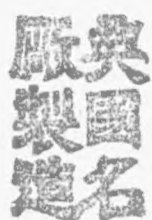 典國名
廠製造